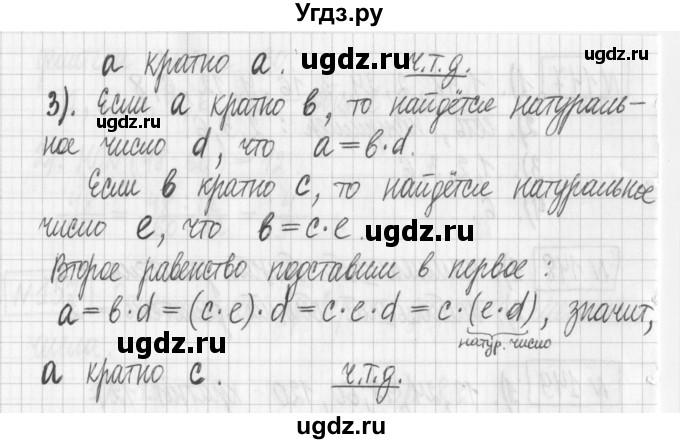 Угдз.ру
а кратно а. ч.т.д.
ugdz.ru
ugdz.ru
3). Если а кратно в, то найдётся натураль-
ugdz.ru
ное число d, что a = в·d.
Если в кратно с, то найдётся натуральное
число е, что в = с·е.
ugdz.ru
Второе равенство подставим в первое:
а = в·d = (с·е)·d = с·е·d = с·(е·d), значит,
натур. число
ugdz.ru
а кратно с. ч.т.д.
ugdz.ru
ugdz.ru